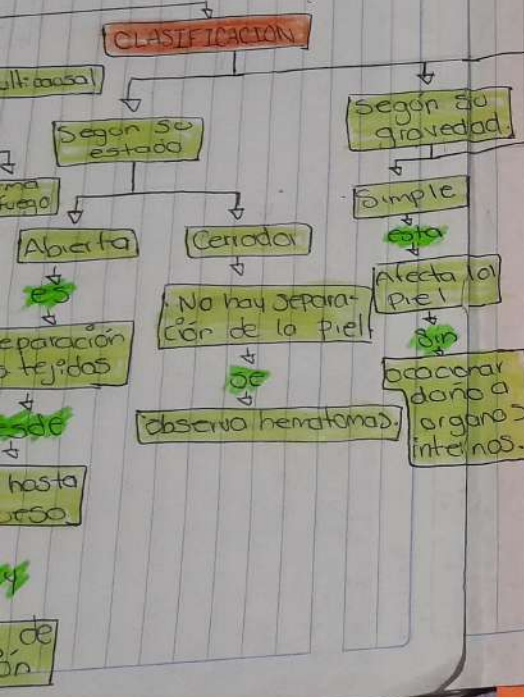 CLASIFICACIÓN
ulticausal
Según su
estado
Según su
gravedad.
ma
fuego
Abierta
Cerrada
Simple
es
esta
No hay separa-
ción de la piel
Afecta la
piel
eparación
tejidos
se
sin
esde
observa hematomas.
ocacionar
daño a
organos
internos.
hasta
ueso.
y
de
ón